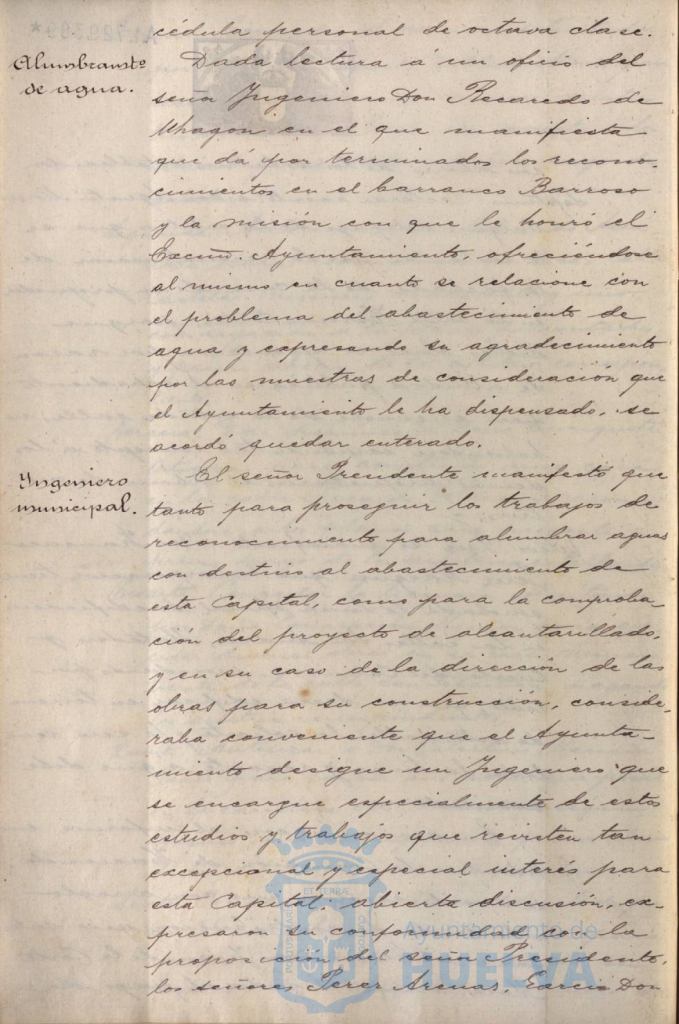 cédula personal de octava clase.
Alumbramto
de agua.
Dada lectura á un oficio del
señor Yngeniero Don Recaredo de
Uhagon en el que manifiesta
que dá por terminados los recono-
cimientos en el barranco Barroso
y la misión con que le honró el
Excmo. Ayuntamiento, ofreciéndose
al mismo en cuanto se relacione con
el problema del abastecimiento de
agua y expresando su agradecimiento
por las muestras de consideración que
el Ayuntamiento le ha dispensado, se
acordó quedar enterado.
Yngeniero
municipal.
El señor Presidente manifestó que
tanto para proseguir los trabajos de
reconocimiento para alumbrar aguas
con destino al abastecimiento de
esta Capital, como para la comproba-
ción del proyecto de alcantarillado,
y en su caso de la dirección de las
obras para su construcción, conside-
raba conveniente que el Ayunta-
miento designe un Yngeniero que
se encargue especialmente de estos
estudios y trabajos que revisten tan
excepcional y especial interés para
esta Capital; abierta discusión, ex-
presaron su conformidad con la
proposición del señor Presidente,
los señores Perez Arenas, Garcia Don
Ayuntamiento de
HUELVA